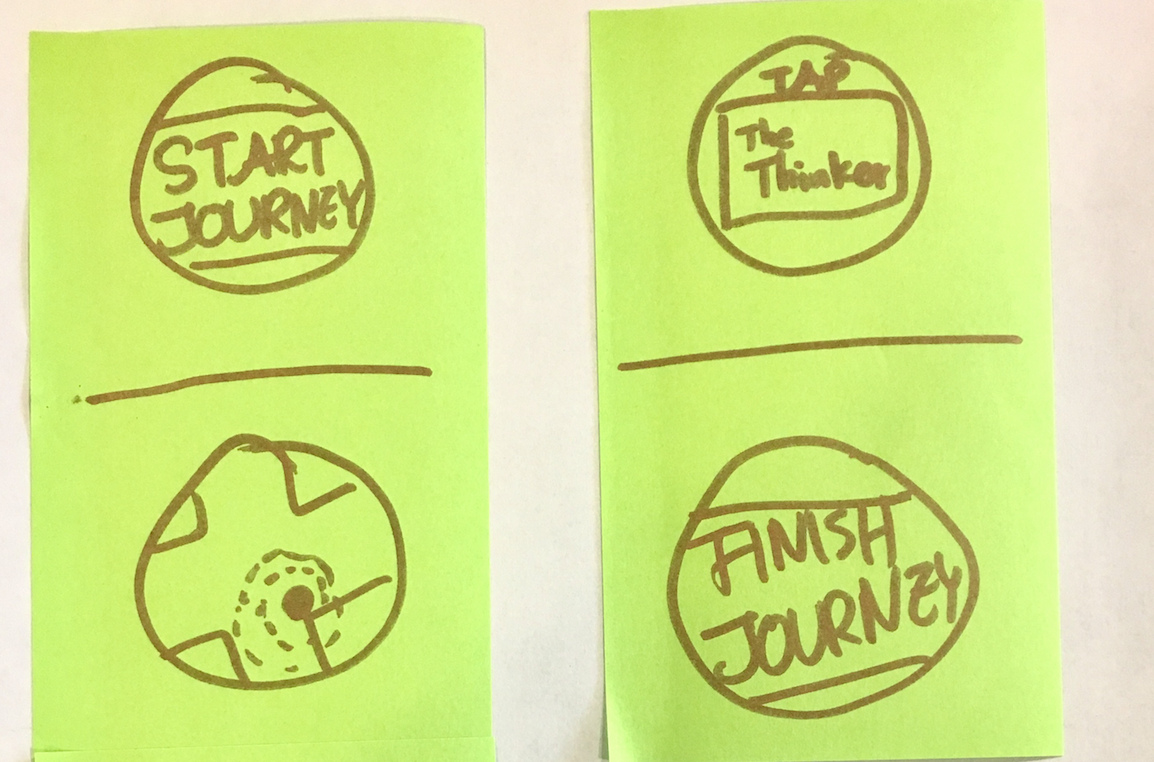 START
JOURNEY
TAP
The
Thinker
FINISH
JOURNEY